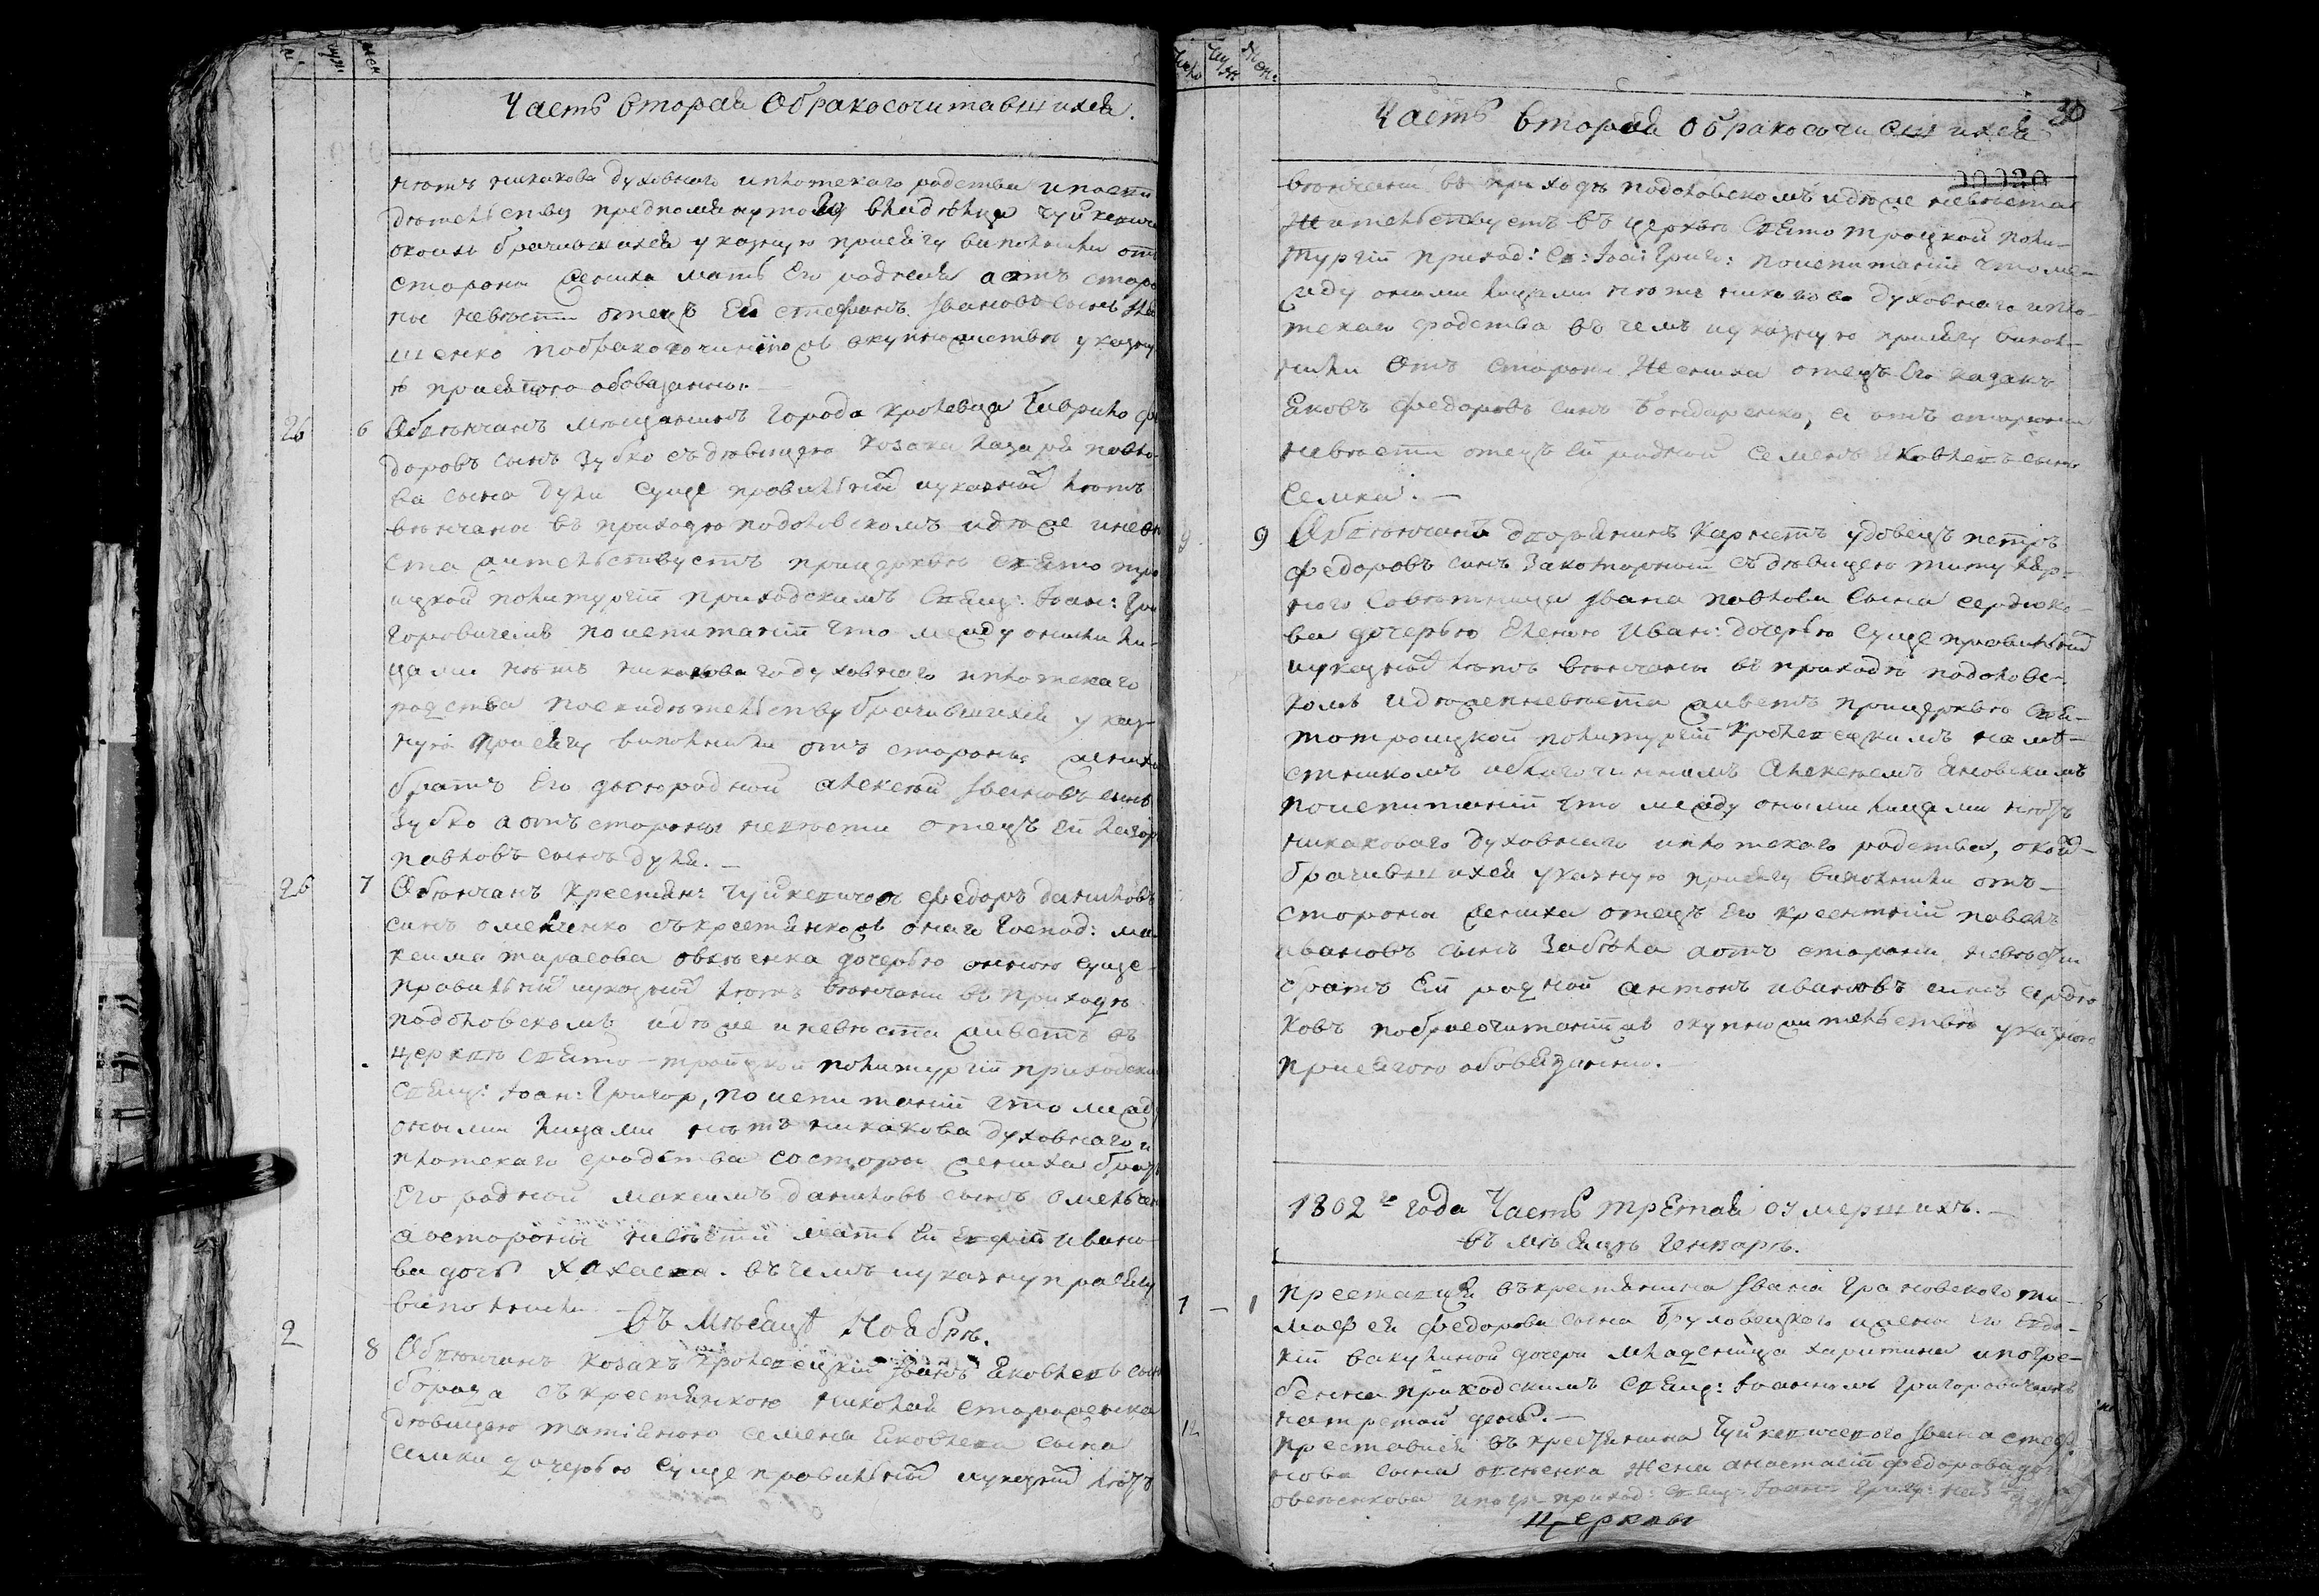 Часть вторая Обракосочитавшихся.
нѣтъ никакова духовнаго иплотскаго родства ипосви
дѣтельству
оноихъ брачившихся указную присягу виполнили отъ
стороны жениха мать Его родная аотъ сторо
ны невѣсти отецъ Ея стефанъ Ивановъ сынъ
шенко указну
ю присягою обовязанны.
26 6 Обвѣнчанъ мѣщанинъ города кролевца Гаврило фе
доровъ сынъ Зубко съдѣвицею козака Лазаря павло
ва сына Дули суще правилній иуказній лѣтъ
вѣнчаны въ приходѣ подоловскомъ идѣже иневѣ
ста жителствуетъ прицерквѣ свято тро
ицкой политургіи приходскимъ свящ: Іоан: Гри
горовичемъ поиспитаніи что между оними ли-
цами нѣтъ никаковаго духовнаго иплотскаго
родства посвидѣтельству брачившихся указ-
ную присягу виполнили отъ стороны жениха
братъ Его двоюродной алексѣй Ивановъ синъ
Зубко аотъ стороны невѣсти отецъ Ея Лазар
павловъ сынъ Дуля.
26 7 Обвѣнчанъ крестян: Чуйкевичовъ Федоръ даниловъ
синъ омелченко съкрестянкою онаго Господ: ма
ксима тарасова овсѣенка дочерью анною суще
правилній иуказній лѣтъ вѣнчани въ приходѣ
подоловскомъ идѣже иневѣста живетъ въ
церквѣ свято-тройцкой политургіи приходски
свящ: Іоан: Григор, поиспитаніи что межд
оными лицами нѣтъ никакова духовнаго и
плотскаго сродства состоры жениха братъ
Его родной максимъ даниловъ сынъ омельчен
аостороны невѣсти мать Ея ивано
ва дочь въчемъ иуказну присягу
виполнили
Въ Мѣсяцѣ Ноябрѣ.
2 8 Обвѣнчанъ козакъ кролевецкій Іванъ Яковлевъ сынъ
съкрестянкою николая стороженка
дѣвицею татіяною семена Яковлева сына
семки дочерью суще правилній иуказній лѣтъ
Часть вторая обракосочисшихся
30
00020
вѣнчани въ приходѣ подоловскомъ идѣже невѣста
жителствуетъ въ церквѣ Свято троицкой поли-
тургіи приход: Св: Іоа: Григо: поиспитаніи что ме-
жду оними лицами нѣтъ никакова духовнаго ипло-
тскаго сродства въ чемъ иуказную присягу випол-
нили Отъ стороны Жениха отецъ Его казакъ
Яковъ федоровъ синъ Бондаренко, а отъ стороны
невѣсти отецъ Ея родной семенъ Яковлевъ сынъ
Семка.
9 9 Обвѣнчанъ дворянинъ Карнетъ удовецъ петръ
федоровъ синъ Закоторной съдѣвицею титуляр-
ного совѣтника Ивана павлова сына сердюко-
ва дочерью Еленою Иван: дочерью суще правилній
иуказній лѣтъ вѣнчаны въ приходѣ подоловс-
комъ идѣжеиневѣста живетъ прицерквѣ Свя-
тотроицкой политургіи Кролевецкимъ намѣ-
стникомъ иблагочиннимъ Алексѣемъ Яновскимъ
поиспитаніи что между оными лицами нѣтъ
никаковаго духовнаго иплотскаго родства, окой
брачившихся указную присягу виполнили отъ
стороны жениха отецъ Его крестній павелъ
ивановъ сынъ Забѣла аотъ стороны невѣсти
братъ Ея родной антонъ ивановъ синъ сердю
ковъ указною
присягою обовязанни.
1802го года Часть трЕтая оумершихъ.
въ мѣсяцѣ Генварѣ.
1 – 1 преставися въкрестянина Ивана Грановского ти-
мофея федорова сына жены его Евдо-
кіи вакулиной дочери младеница Харитина ипогре-
бенна приходскимъ свящ: Іоанномъ Григоровичемъ
натретой день.
12 преставися въкрестянина Чуйкевичевого Ивана стеф
нова сына овсѣенка жена анастасія федорова до
овсѣенкова ипогр приход: свящ: Іоан Григ: на 3
церквы